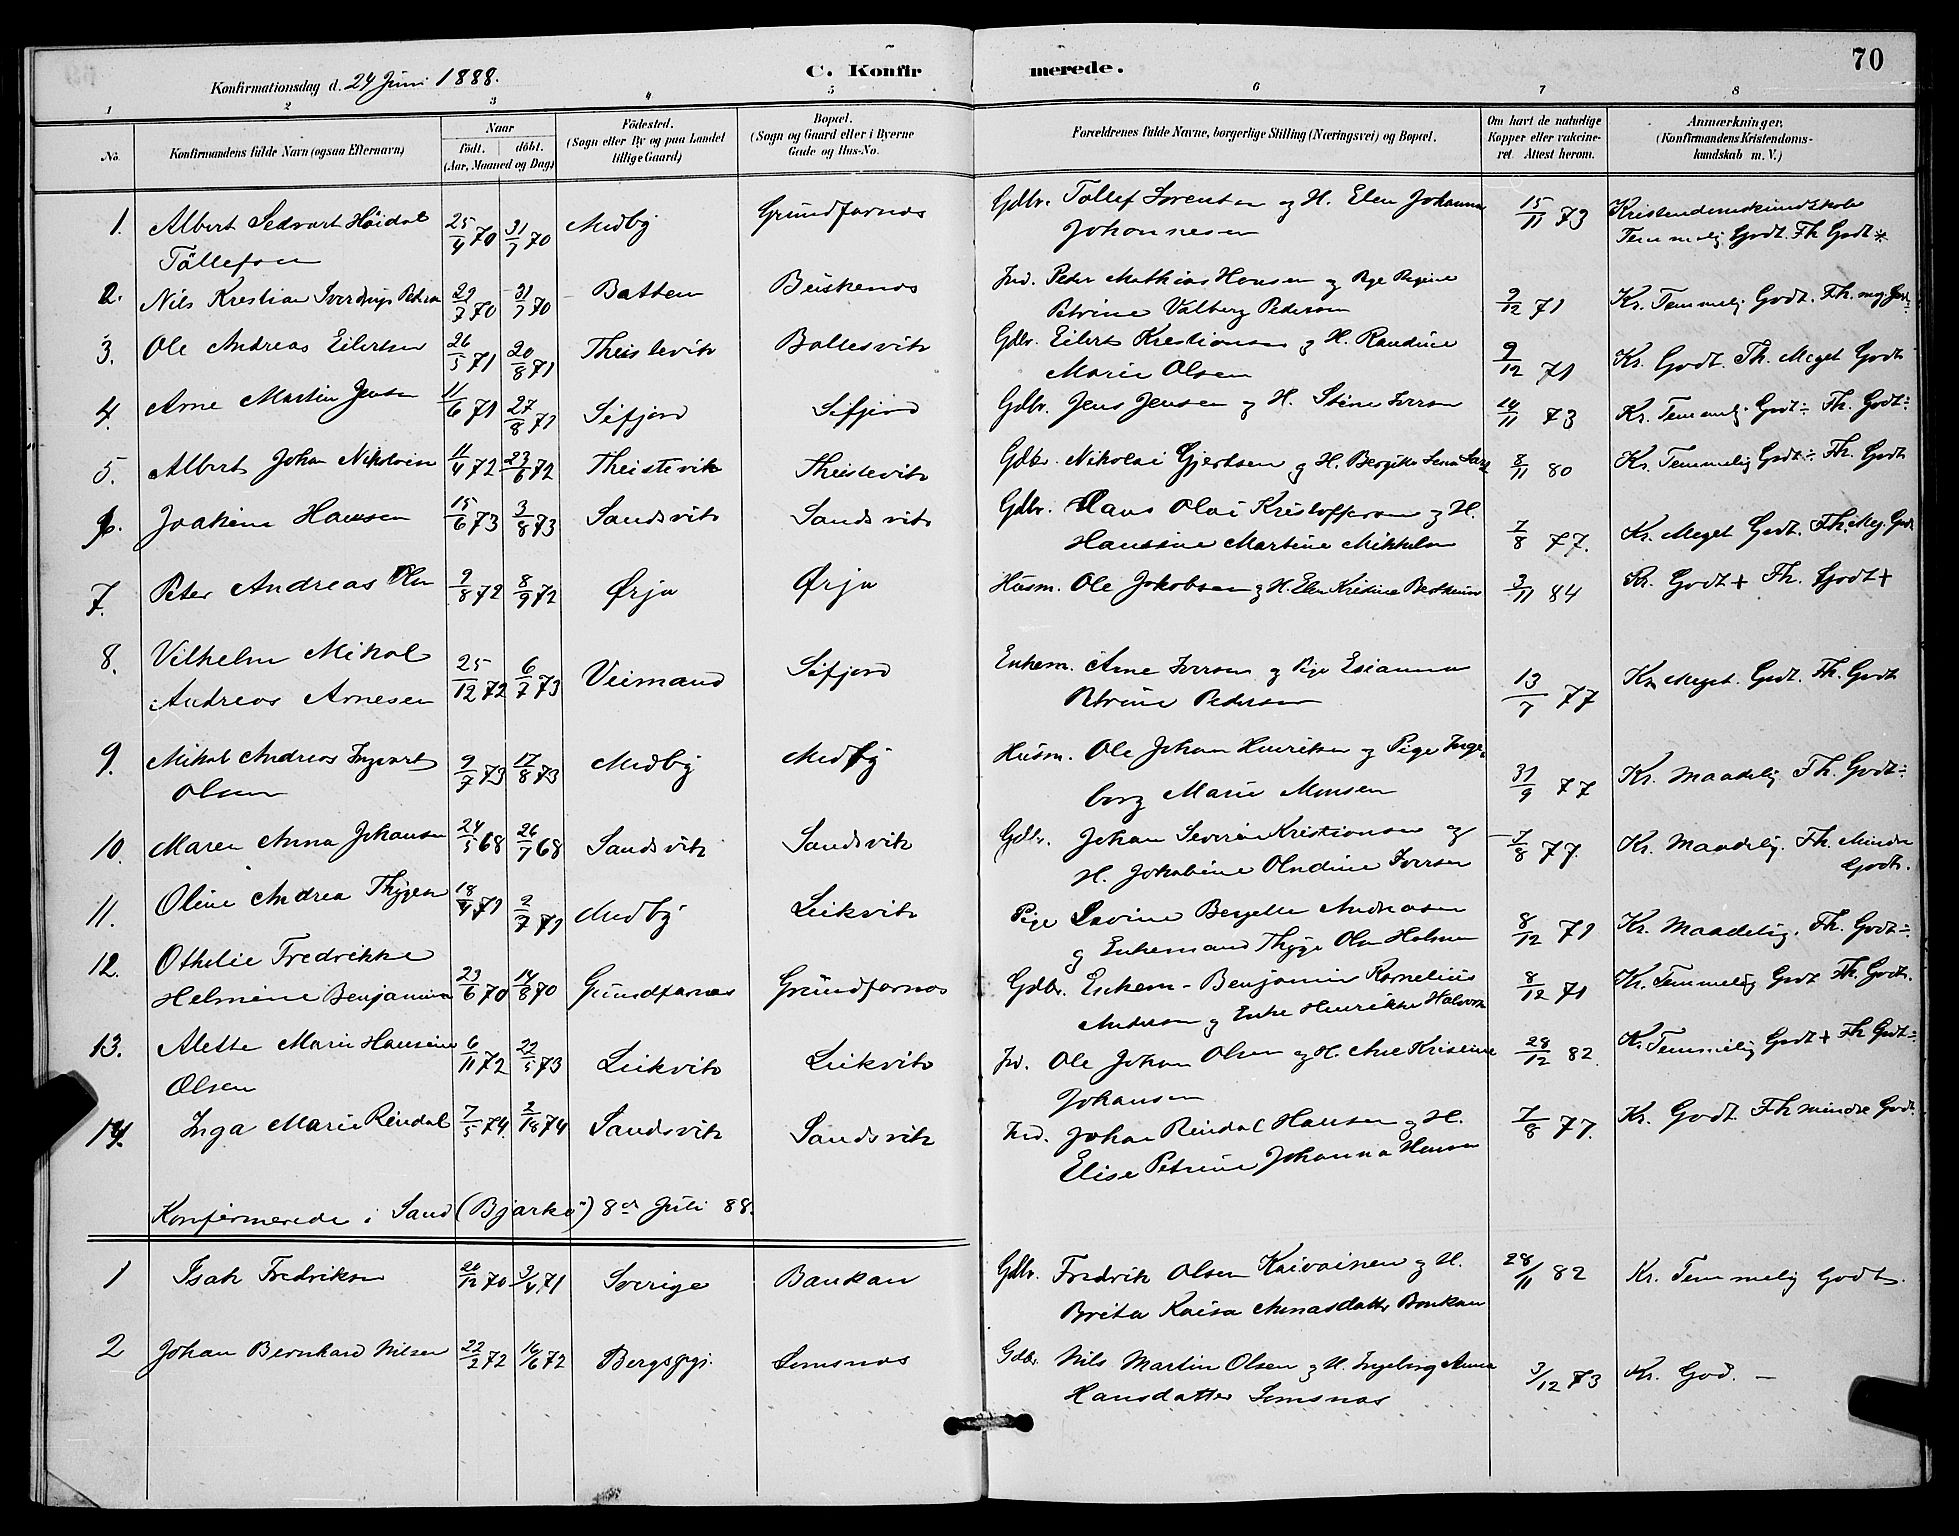 70
Konfirmationsdag d. 24 Juni 1888.
C. Konfirmerede.
1 2 3 4 5 6 7 8
No.
Konfirmandens fulde Navn (ogsaa Efternavn)
Naar
født. døbt.
(Aar, Maaned og Dag)
Fødested.
(Sogn eller By og paa Landet
tillige Gaard)
Bopæl.
(Sogn og Gaard eller i Byerne
Gade og Hus-No.
Forældrenes fulde Navne, borgerlige Stilling (Næringsvei) og Bopæl.
Om havt de naturlige
Kopper eller vakcine-
ret. Attest herom.
Anmærkninger,
(Konfirmandens Kristendoms-
kundskab m. V.)
1. Albert Sedvart Høidal 25/4 70 31/7 70 Medby Grundfarnes Gdbr. Tollef Sorensen og H. Elen Johanna 15/11 73 Kristendomskundskab
Tollefsen Johannesen Temmelig Godt. Fh Godt *
2. Nils Krestian Sverdrup 31/7 70 Batten Buskenes Ind. Peder Mathias Hansen og Pige Regine 9/12 71 Kr. Temmelig Godt. Fh. meg. Godt
Petrine Valberg Pedersen
3. Ole Andreas Eilertsen 26/5 71 20/8 71 Theistevik Baltesvik Gdbr. Eilert Krestiansen og H. Randine 9/12 71 Kr. Godt. Fh. Meget Godt
Marie Olsen
4. Arne Martin Jensen 11/6 71 27/8 71 Sifjord Sifjord Gdbr. Jens Jensen og H. Stine Iversen 73 Kr. Temmelig Godt ÷ Fh. Godt ÷
5. Albert Johan Nikolaisen 11/4 72 23/6 72 Theistevik Theistevik Gdbr. Nikolai Gjertsen og H. Lena 8/11 80 Kr. Temmelig Godt ÷ Fh. Godt
6. Joakim Hansen 15/6 73 3/8 73 Sandsvik Sandsvik Gdbr. Hans Olai Kristoffersen og H. 7/8 77. Kr. Meget Godt. Fh. Meg. Godt
Hansine Martine Mikkelsen
7. Peter Andreas Olsen 9/8 72 8/9 72 Ørja Ørja Husm. Ole Jakobsen og H. Elen Kristine 3/11 84 Kr. Godt + Fh. Godt +
8. Vilhelm Mikal 25/12 72 6/7 73 Veimand Sifjord Enkem. Arne Iversen og Pige Esianna 13/7 77 Kr. Meget Godt. Fh. Godt
Andreas Arnesen Petrine Pedersen
9. Mikal Andreas Ingvart 9/7 73 17/8 73 Medby Medby Husm. Ole Johan Henriksen og Pige Inge- 31/9 77 Kr. Maadelig Fh. Godt ÷
Olsen borg Marie Monsen
10. Maren Anna Johansen 24/5 68 26/7 68 Sandsvik Sandsvik Gdbr. Johan Severin Kristiansen og 7/8 77. Kr. Maadelig. Fh. Mindre
H. Jakobine Olndine Iversen Godt.
11. Oline Andrea Thygesen 18/4 71 2/7 71 Medby Leikvik Pige Lovine Bergette Andreasen 8/12 71 Kr. Maadelig. Fh. Godt ÷
og Enkemand Thyge Olsen Holmen
12. Othelie Fredrikke 23/6 70 14/8 70 Grundfarnes Grundfarnes Gdbr. Enkem - Benjamin Kornelius 8/12 71 Kr. Temmelig Godt Fh. Godt.
Helmine Benjaminsen Andersen og Enke Henrikke Halvorsen
13. Alette Marie Hansine 6/11 72 22/5 73 Leikvik Leikvik Ind. Ole Johan Olsen og H. Ane Kristine 28/12 82. Kr. Temmelig Godt + Fh Godt ÷
Olsen Johansen
14. Inga Marie Reindal 7/5 74. 74 Sandsvik Sandsvik Ind. Johan Reindal Hansen og H. 7/8 77. Kr. Godt. Fh mindre Godt.
Elise Petrine Johanna Hansen
Konfirmerede i Sand (Bjarkø) 8de Juli 88.
1 Isak Fredriksen 20/12 70 3/4 71 Sverige Baukan Gdbr. Fredrik Olsen Kaivainen og H. 28/11 82 Kr. Temmelig Godt.
Brita Kaisa Annasdatter Baukan
2 Johan Bernhard Nilsen 22/2 72 16/6 72 Bergspgj. Lemsnæs Gdbr. Nils Martin Olsen og H. Ingeborg Anna 3/12 73 Kr. God. –
Hansdatter Lemsnæs